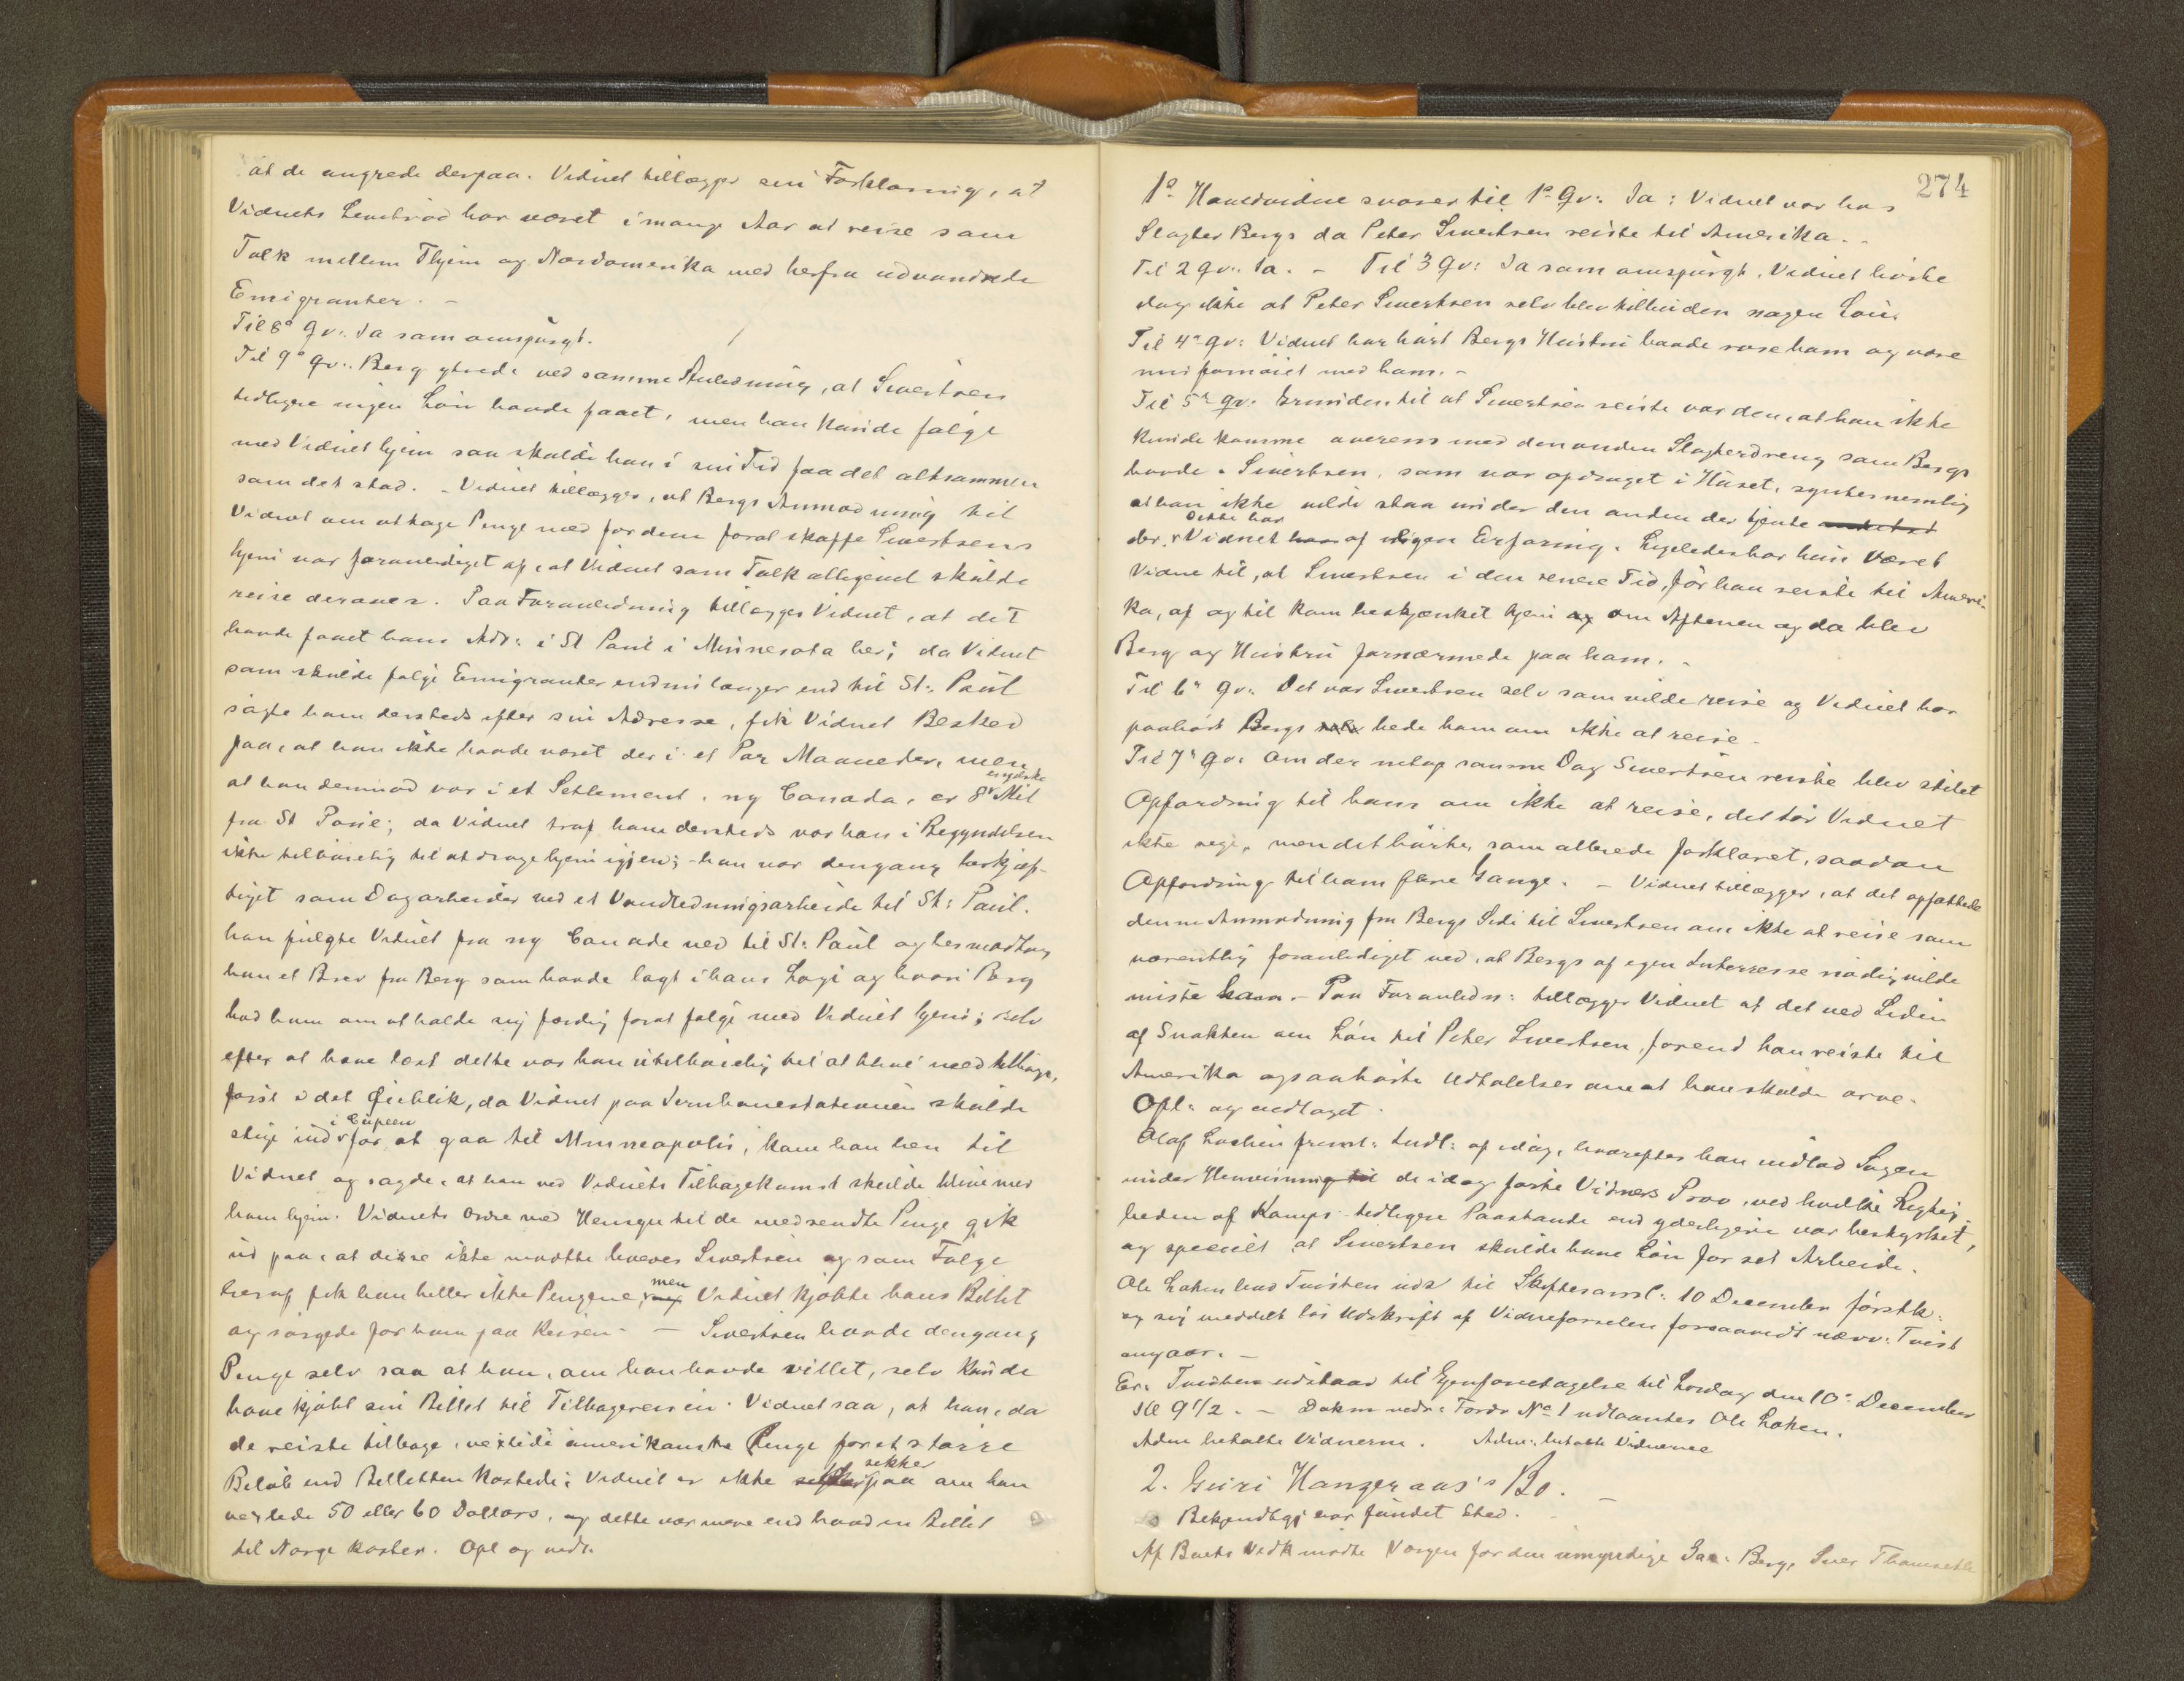 at de angrede derpaa. Vidnet tillægger sin Forklaring, at
Vidnets Levebrød har været i mange Aar at reise som
Tolk mellem Thjem og Nordamerika med herfra udvandrede
Emigranter. –
Til 8de Qv: Ja som omspurgt.
Til 9de Qv: Berg ytrede ved samme Anledning, at Sivertsen
tidligere ingen Løn havde faaet, men han kunde følge
med Vidnet hjem saa skulde han i sin Tid faa det altsammen
som det stod. – Vidnet tillægger, at Bergs Anmodning til
Vidnet om at tage Penge med for dem forat skaffe Sivertsens
hjem var foranlediget af, at Vidnet som Tolk alligevel skulde
reise derover. Paa Foranledning tillægger Vidnet, at det
havde faaet hans Adr: i St Paul i Minnesota her; da Vidnet
som skulde følge Emigranter endnu længer end til St: Paul
søgte ham dersteds efter sin Adresse, fik Vidnet Besked
paa, at han ikke havde været der i et Par Maaneder, men
at han derimod var i et Setlement, ny Canada, er 8 engelske Mil
fra St Paul; da Vidnet traf ham dersteds var han i Begyndelsen
ikke tilbøielig til at drage hjem igjen; han var dengang beskjæf-
tiget som Dagarbeider ved et Vandledningsarbeide til St: Paul.
han fulgte Vidnet fra ny Canade ned til St: Paul og her modtog
han et Brev fra Berg som havde lagt i hans Logi og hvori Berg
bad ham om at holde sig færdig forat følge med Vidnet hjem; selv
efter at have læst dette var han utilbøielig til at blive med tilbage,
først i det Øieblik, da Vidnet paa Jernbanestationen skulde
stige ind i Cupeen for at gaa til Minneapolis, kom han hen til
Vidnet og sagde, at han ved Vidnets Tilbagekomst skulde blive med
ham hjem. Vidnets Ordre med Hensyn til de medsendte Penge gik
ud paa, at disse ikke maatte leveres Sivertsen og som Følge
heraf fik han heller ikke Pengene, men Vidnet kjøbte hans Billet
og sørgede for ham paa Reisen. – Sivertsen havde dengang
Penge selv saa at han, om han havde villet, selv kunde
have kjøbt sin Billet til Tilbagereisen. Vidnet saa, at han, da
de reiste tilbage, vexlede amerikanske Penge for et større
Beløb end Billetten kostede; Vidnet er ikke sikker paa om han
vexlede 50 eller 60 Dollars, og dette var mere end hvad en Billet
til Norge koster. Opl og vedt.
274
1ste Hovedvidne svarer til 1ste Qv: Ja: Vidnet var hos
Slagter Bergs da Peter Sivertsen reiste til Amerika. –
Til 2 Qv: Ja. – Til 3 Qv: Ja som omspurgt. Vidnet hørte
dog ikke at Peter Sivertsen selv blev tilbuden nogen Løn.
Til 4de Qv: Vidnet har hørt Bergs Hustru baade rose ham og være
misfornøiet med ham. –
Til 5te Qv: Grunden til at Sivertsen reiste var den, at han ikke
kunde komme overens med den anden Slagterdreng som Bergs
havde. Sivertsen, som var opdraget i Huset, syntes nemlig
at han ikke vilde staa under den anden der tjente
der. Dette har Vidnet af egen Erfaring. Ligeledes har hun været
Vidne til, at Sivertsen i den senere Tid, før han reiste til Ameri-
ka, af og til kom beskjænket hjem om Aftenen og da blev
Berg og Hustru fornærmede paa ham. –
Til 6te Qv: Det var Sivertsen selv som vilde reise og Vidnet har
paahørt Bergs bede ham om ikke at reise.
Til 7de Qv: Om der netop samme Dag Sivertsen reiste blev stilet
Opfordring til ham om ikke at reise, det tør Vidnet
ikke sige, men det hørte, som allerede forklaret, saadan
Opfordring til ham flere Gange. – Vidnet tillægger, at det opfattede
denne Anmodning fra Bergs Side til Sivertsen om ikke at reise som
væsentlig foranlediget ved, at Bergs af egen Interesse nødig vilde
miste ham. – Paa Foranledn: tillægger Vidnet at det ved Siden
af Snakken om Løn til Peter Sivertsen, førend han reiste til
Amerika ogsaa hørte Udtalelser om at han skulde arve.
Opl: og vedtaget.
Olaf Loehen freml: Indl: af idag, hvorefter han indlod Sagen
under Henvisning de idag førte Vidners Prov, ved hvilke Rigtig
heden af Kamps tidligere Paastande end yderligere var bestyrket,
og specielt at Sivertsen skulde have Løn for sit Arbeide.
Ole Løken lod Tvisten uds til Skiftesaml: 10 December førstk:
og sig meddelt los Udskrift af Vidneførselen forsaavidt nævn: Tvist
angaar. –
Er: Tvisten udstaar til Gjenforetagelse til Lørdag den 10de December
Kl 9 1/2. – Dokm vedr: Fordr No 1 udlaantes Ole Løken.
Adm betalte Vidnerne. Adm: betalte Vidnerne
2. Guri Hangeraas's Bo. –
Bekjendtgj har fundet Sted.
Af Boets Vedk mødte Værgen for den umyndige Berg, Siver